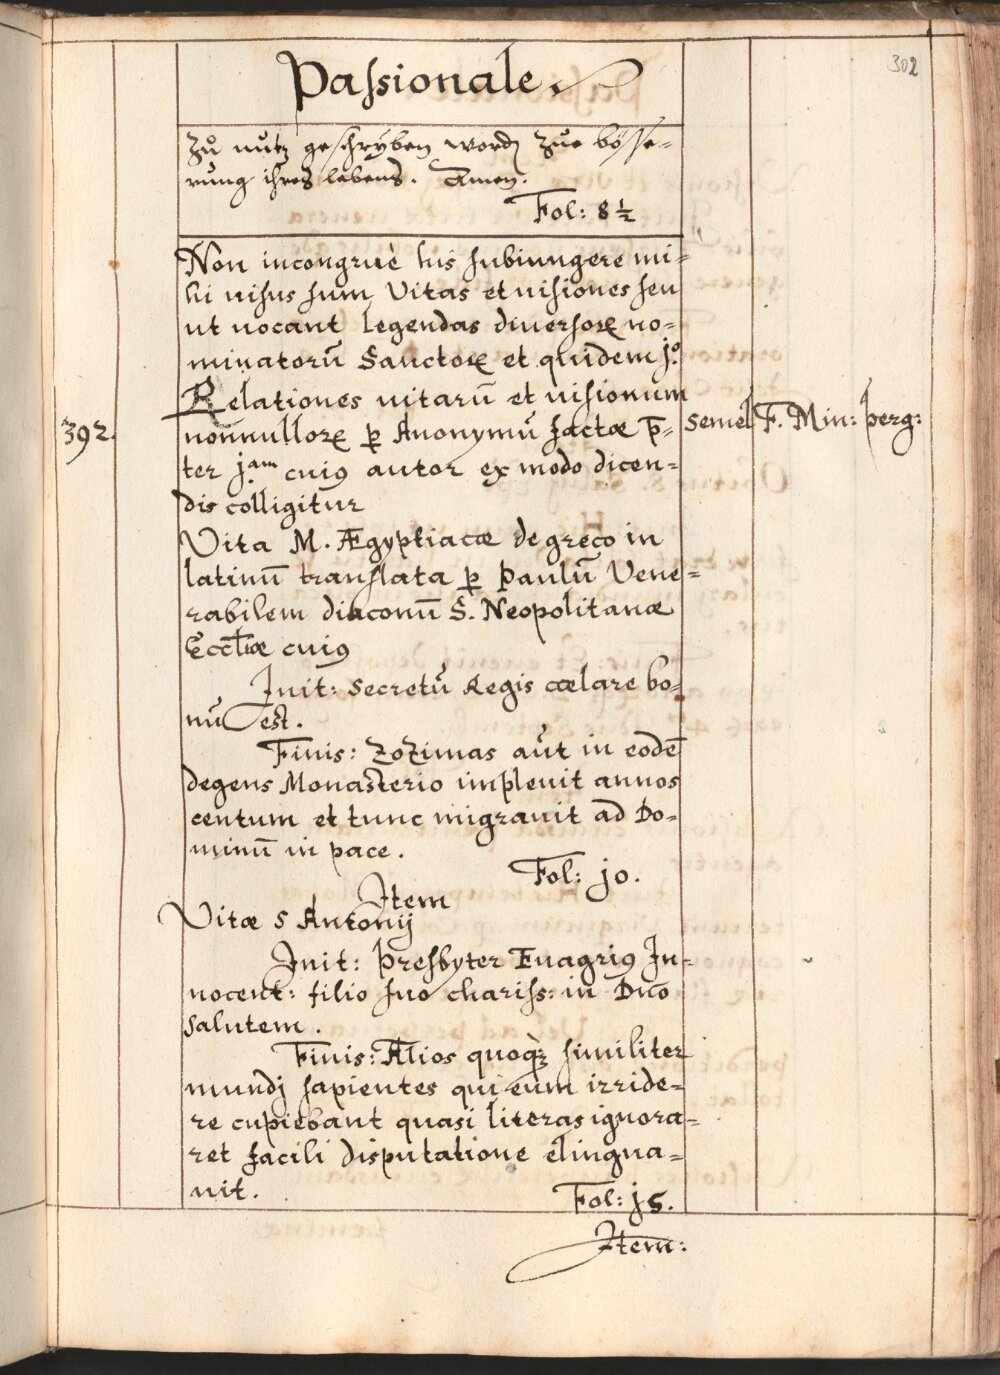 302
Paſsionale.
Zů nutz geschryben word zue bösse-
rung ihres lebens. Amen.
Fol: 8½
Non incongruè his ſubiungere mi-
hi uiſus ſum Vitas et uiſiones ſeu
ut uocant Legendas diuerſoꝝ no-
minatorū Sanctoꝝ et quidem jº.
Relationes uitarū et uiſionum
392. nonnulloꝝ ꝑ Anonymū factæ p̄- semel F. Min: perg:
ter j.am cuiꝰ autor ex modo dicen-
dis colligitur
Vita M. Ægyptiacæ de greco in
latinū tranſlata ꝑ Paulū Vene-
rabilem diaconū S. Neopolitanæ
Eccl̄iæ cuiꝰ
Init: Secretū Regis cœlare bo-
nū est.
Finis: ZoZimas aūt in eodē
degens Monasterio impleuit annos
centum et tunc migrauit ad Do-
minū in pace.
Fol: jo.
Item
Vitæ S Antonij
Init: Preſbyter Euagriꝰ In-
nocent: filio ſuo chariſs: in Dn̄o
salutem.
Finis: Alios quoqꝫ ſimiliter
mundj ſapientes qui eum irride-
re cupiebant quasi literas ignora-
ret facili disputatione elingua-
uit.
Fol: j5.
Item: